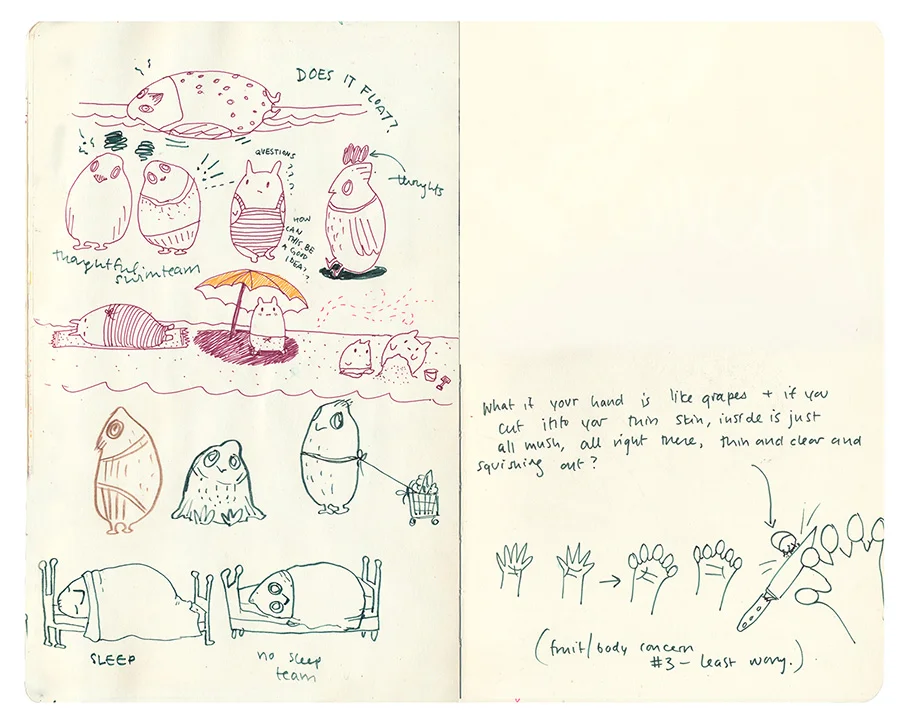 DOES IT FLOAT?
QUESTIONS
? ? ? ?
HOW
CAN
THIS BE
A GOOD
IDEA??
thoughts
thoughtful
swimteam
SLEEP
no sleep
team
What if your hand is like grapes + if you
cut into your thin skin, inside is just
all mush, all right there, thin and clear and
squishing out?
(fruit/body concern
#3 - least worry.)